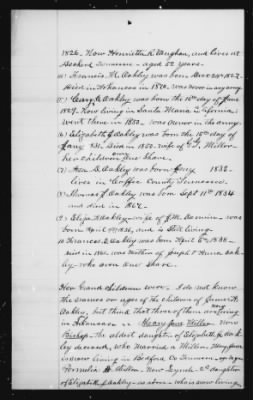 1826. Now Henrietta R. Vaughan, and lives at
Bedford Tennessee - aged 52 years.
Francis M. Oakley was born
died in Arkansas in 1870. was never in any army
Oakley was born the 16th day of June
1829. Now living in Santa Maria California
went there in 1850. was never in the army.
Elizabeth J. Oakley was born the 10th day of
Jany Died in 1850. wife of G. J. Miller
her children one share.
Oakley was born Jany 1832.
lives in Coffee County Tennessee.
Thomas J. Oakley was born Sept 11th 1834
and died in 1862.
Eliza Oakley - wife of J. M. - was
born April 1836, and is still living.
10 Frances E. Oakley was born April 6th 1838 -
died in 1861. was mother of Oak-
ley who owns one share.
Her Grand Children were - I do not know
the names or ages of the children of
Oakley, but think that three of them are living
in Arkansas - Mary Jane Miller - Now
Bishop - the eldest daughter of Elizabeth J. Oak-
ley deceased, who married a Miller. Mary Jane
is now living in Bedford Co Tennessee -
Permelia A. Miller - Now - 2nd daughter
of Elizabeth J. Oakley - as above - who is now living